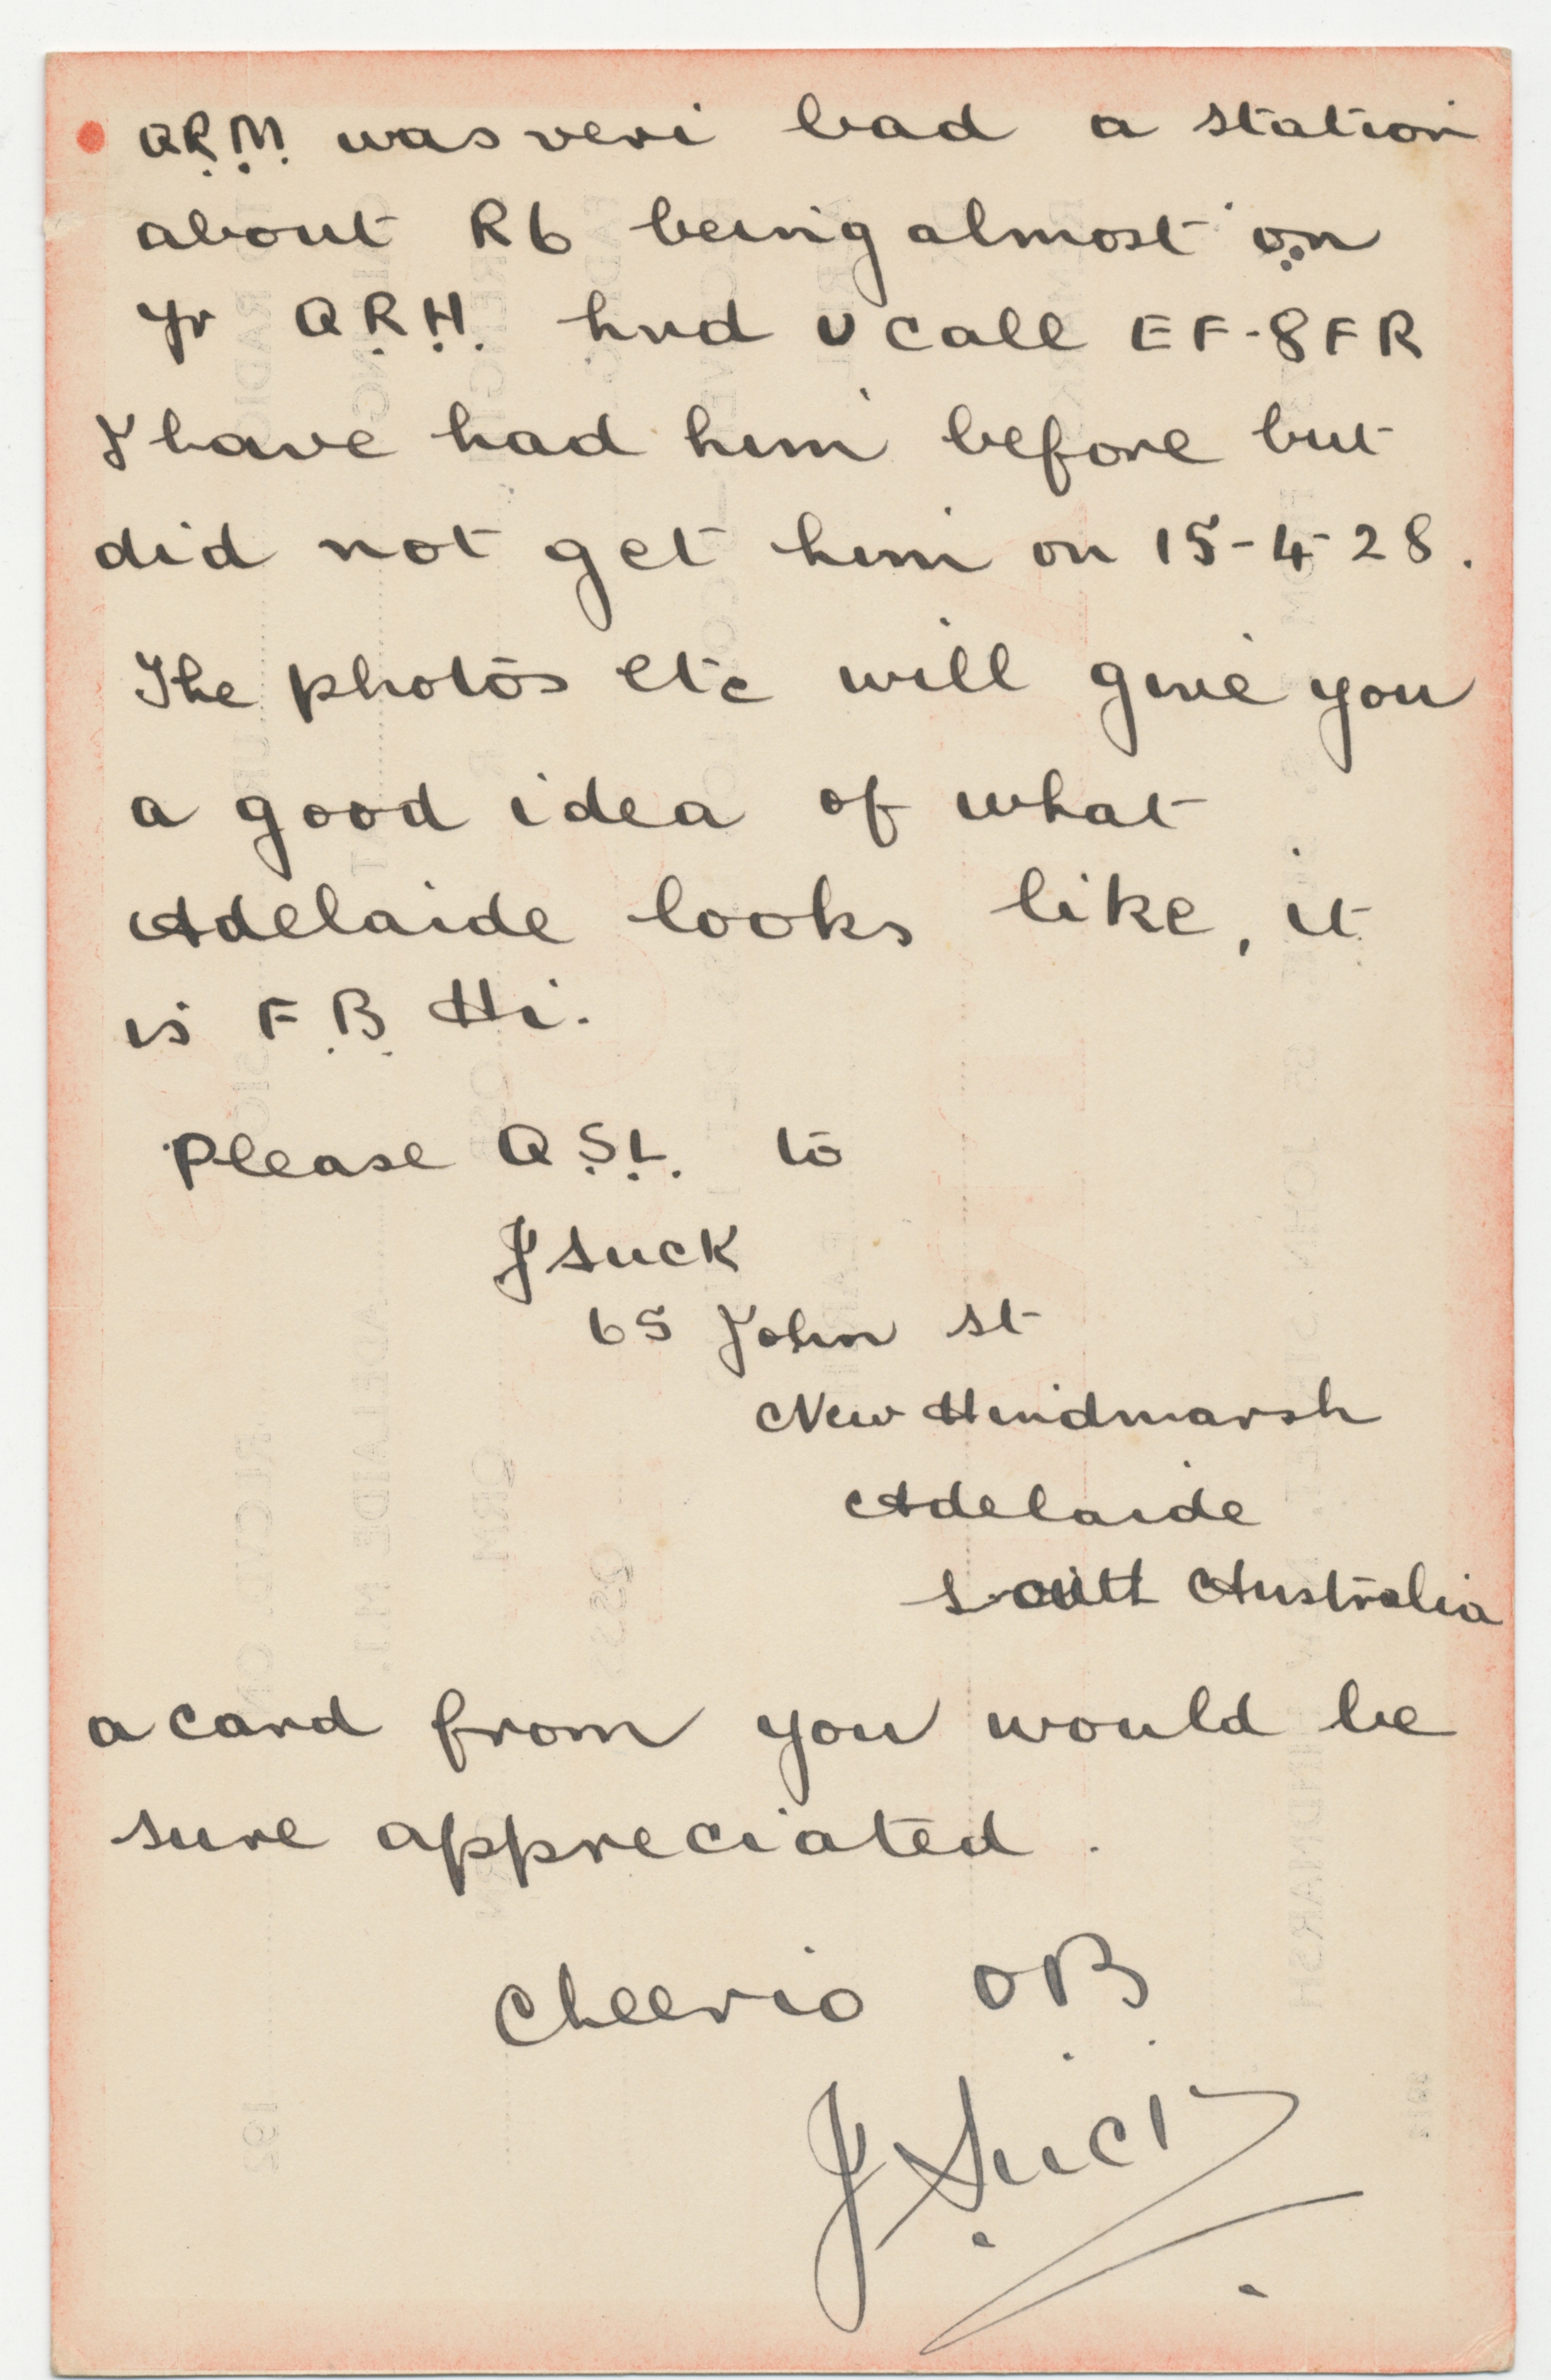 Q.R.M. was veri bad a station
about R6 being almost on
yr Q.R.H. hrd U call EF-8FR
I have had him before but
did not get him on 15-4-28.
The photos etc will give you
a good idea of what
Adelaide looks like, it
is F.B. Hi.
Please Q.S.L. to
J Suck
65 John st
New Hindmarsh
Adelaide
South Australia
a card from you would be
sure appreciated.
Cheerio O.B.
J Suck